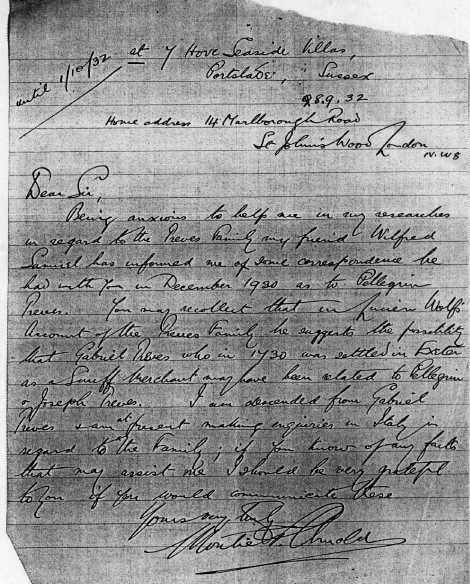 until 1/10/32 at 7 Hove Seaside Villas,
Portslade, Sussex
28.9.32
Home address 14 Marlborough Road
St John's Wood London
N.W.8
Dear Sir,
Being anxious to help me in my researches
in regard to the Treves Family my friend Wilfred
Samuel has informed me of some correspondence he
had with you in December 1930 as to Pellegrin
Treves. You may recollect that in Lucien Wolf's
Account of the Treves Family he suggests the possibility
that Gabriel Treves who in 1730 was settled in Exeter
as a Snuff Merchant may have been related to Pellegrin
& Joseph Treves. I am descended from Gabriel
Treves & am at present making enquiries in Italy in
regard to the Family; if you know of any facts
that may assist me I should be very grateful
to you if you would communicate these
Yours very truly
Arnold